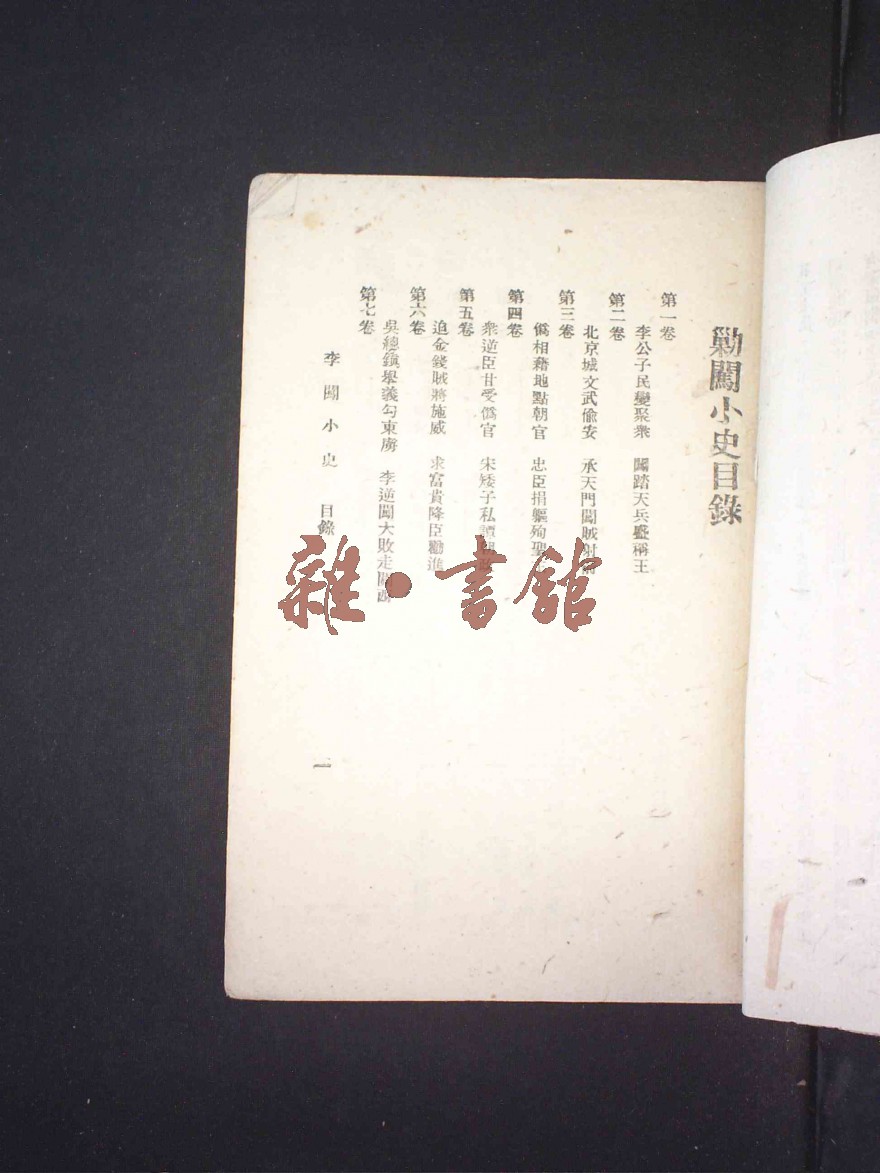 勦闖小史目錄
第一卷
李公子民變聚衆　闖踏天兵盛稱王
第二卷
北京城文武偷安　承天門闖賊射
第三卷
僞相藉地點朝官　忠臣捐軀殉聖
第四卷
衆逆臣甘受僞官　宋矮子私譚
第五卷
追金錢賊將施威　求富貴降臣勸進
第六卷
吳總鎮舉義勾東虜　李逆闖大敗走關西
第七卷
李闖小史　目錄
二
雜·書館